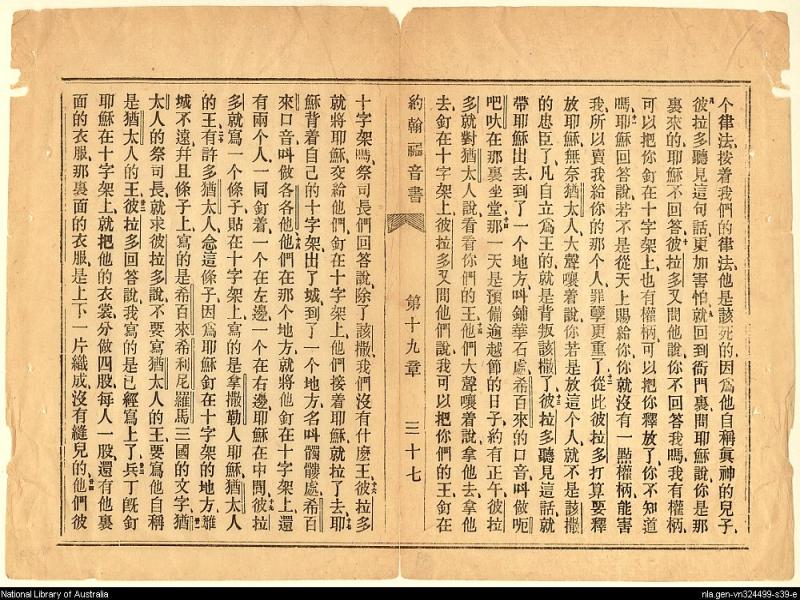 个律法、按着我們的律法、他是該死的、因爲他自稱眞神的兒子、
彼拉多聽見這句話、更加害怕、就回到衙門裏、問耶穌說、你是那
裏來的、耶穌不回答、彼拉多又問他說、你不回答我嗎、我有權柄、
可以把你釘在十字架上、也有權柄、可以把你釋放了、你不知道
嗎、耶穌回答說、若不是從天上賜給你、你就沒有一點權柄、能害
我、所以賣我給你的那个人、罪孽更重了、從此彼拉多打算要釋
放耶穌、無奈猶太人、大聲嚷着說、你若是放這個人、就不是該撒
的忠臣了、凡自立爲王的、就是背叛該撒了、彼拉多聽見這話、就
帶耶穌出去、到了一个地方、叫鋪華石處、希百來的口音、叫做呃
吧𠯿、在那裏坐堂、那一天是預備逾越節的日子、約有正午、彼拉
多就對猶太人說、看看你們的王、他們大聲嚷着說、拿他去、拿他
去、釘在十字架上、彼拉多又問他們說、我可以把你們的王、釘在
約翰福音書 第十九章 三十七
十字架嗎、祭司長們回答說、除了該撒、我們沒有什麼王、彼拉多
就將耶穌交給他們、釘在十字架上、他們接着耶穌、就拉了去、耶
穌背着自己的十字架、出了城、到了一个地方、名叫髑髏處、希百
來口音叫做各各他、他們在那个地方、就將他釘在十字架上、還
有兩个人、一同釘着、一个在左邊、一个在右邊、耶穌在中間、彼拉
多就寫一个條子、貼在十字架上、寫的是拿撒勒人耶穌、猶太人
的王、有許多猶太人、念這條子、因爲耶穌釘在十字架的地方、離
城不遠、幷且條子上、寫的是希百來希利尼羅馬三國的文字、猶
太人的祭司長、就求彼拉多說、不要寫猶太人的王、要寫他自稱
是猶太人的王、彼拉多回答說、我寫的是已經寫上了、兵丁旣釘
耶穌在十字架上、就把他的衣裳分做四股、每人一股、還有他裏
面的衣服、那裏面的衣服、是上下一片織成、沒有縫兒的、他們彼
National Library of Australia
nla.gen-vn324499-s39-e